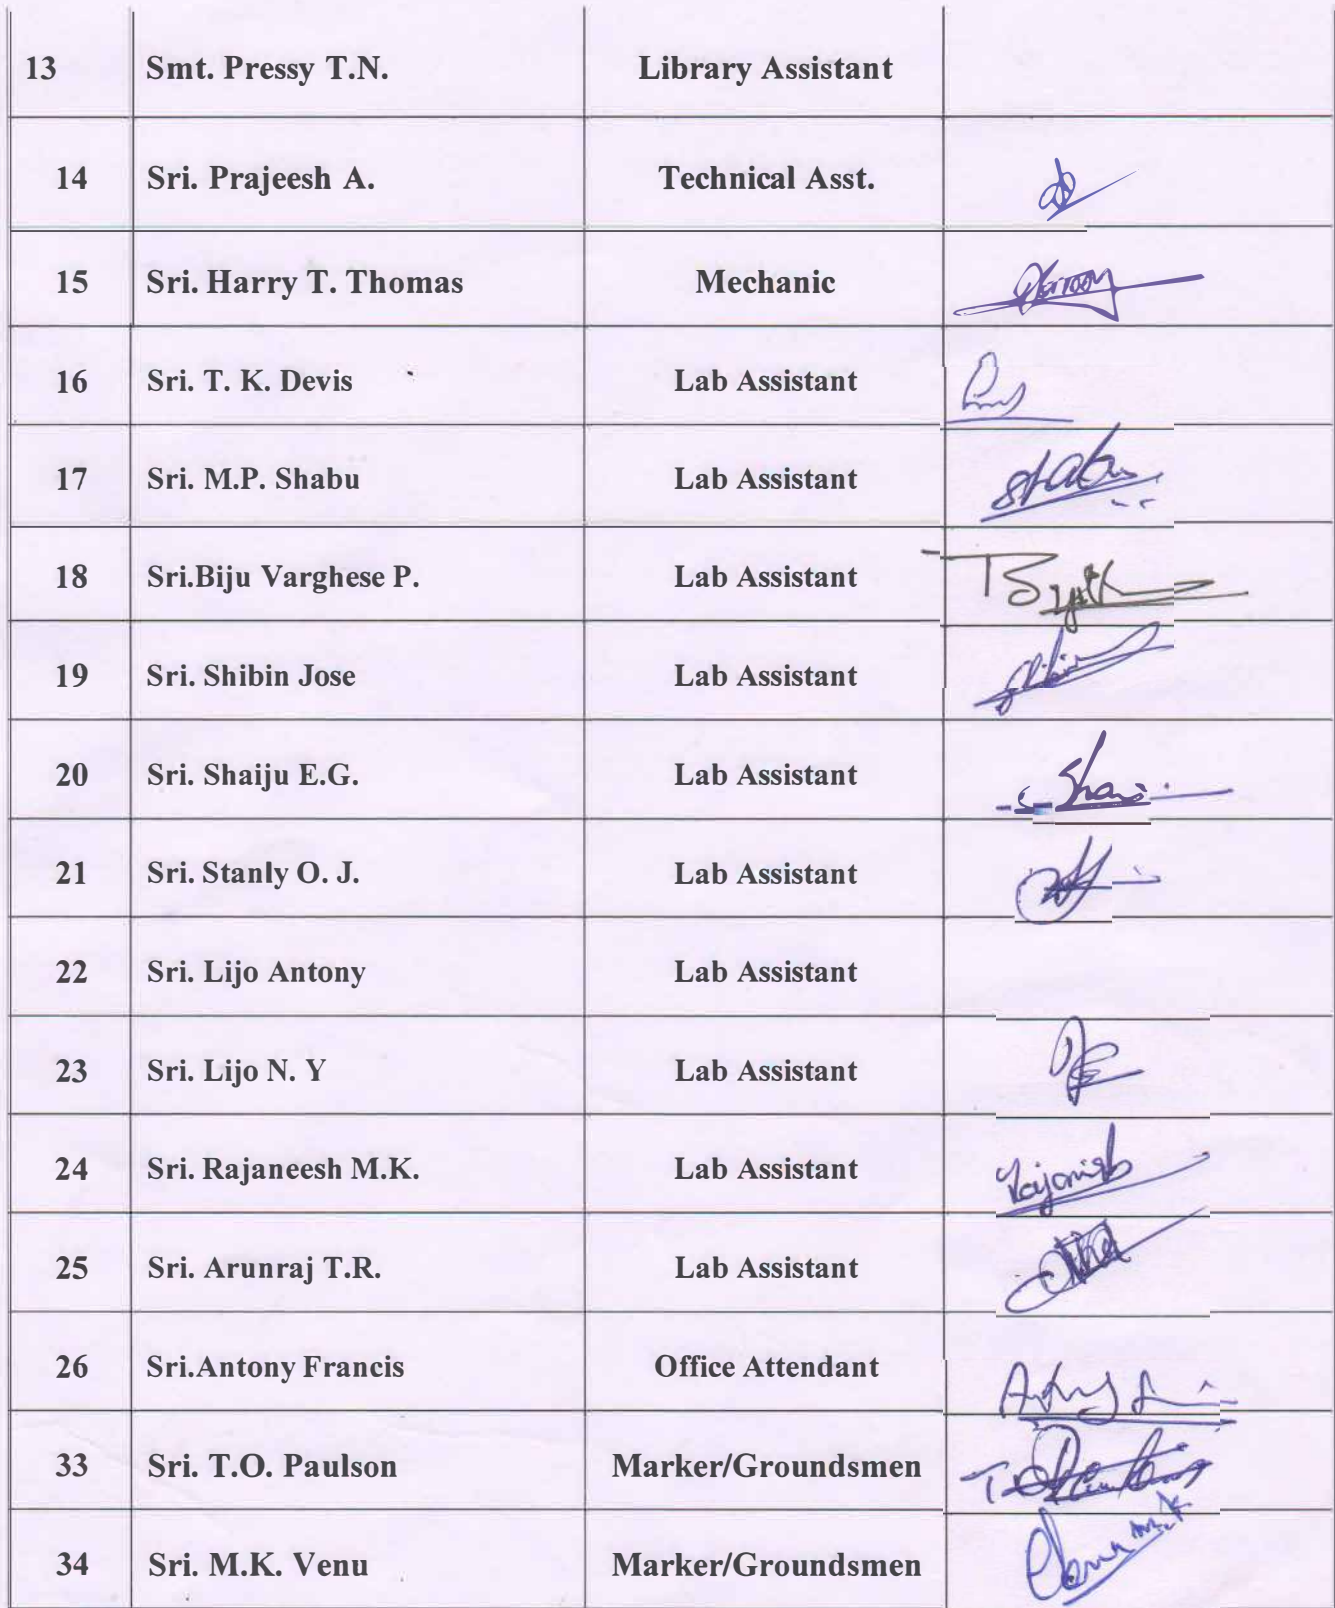 13 Smt. Pressy T.N. Library Assistant
14 Sri. Prajeesh A. Technical Asst.
15 Sri. Harry T. Thomas Mechanic
16 Sri. T. K. Devis Lab Assistant
17 Sri. M.P. Shabu Lab Assistant
18 Sri.Biju Varghese P. Lab Assistant
19 Sri. Shibin Jose Lab Assistant
20 Sri. Shaiju E.G. Lab Assistant
21 Sri. Stanly O. J. Lab Assistant
22 Sri. Lijo Antony Lab Assistant
23 Sri. Lijo N. Y Lab Assistant
24 Sri. Rajaneesh M.K. Lab Assistant
25 Sri. Arunraj T.R. Lab Assistant
26 Sri.Antony Francis Office Attendant
33 Sri. T.O. Paulson Marker/Groundsmen
34 Sri. M.K. Venu Marker/Groundsmen